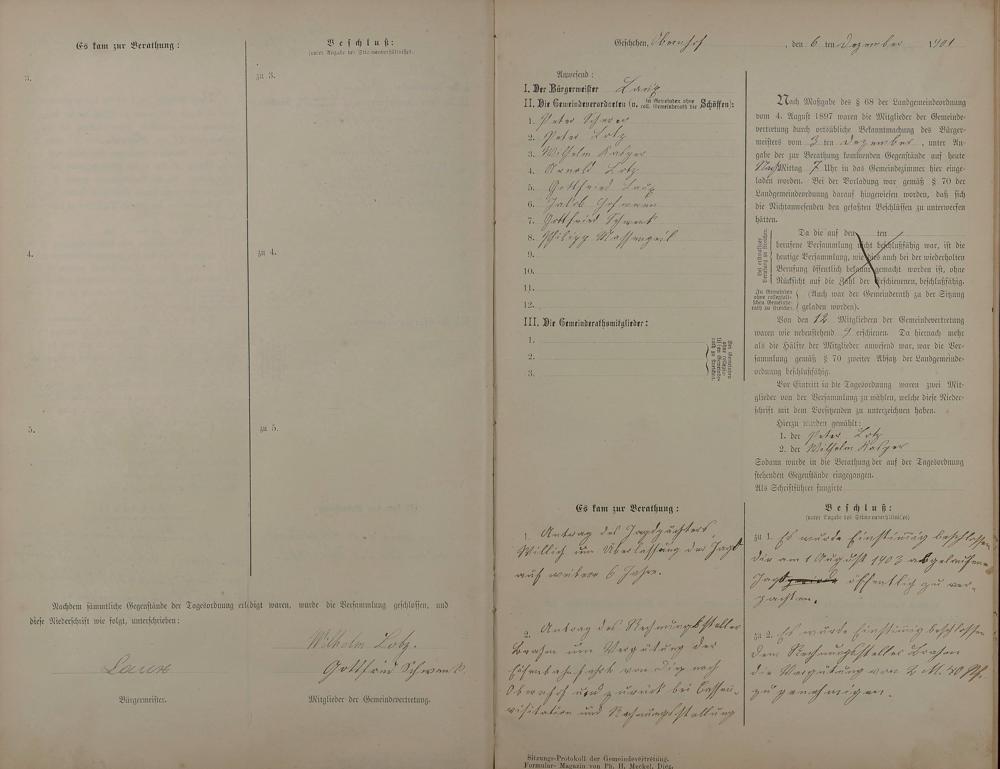 Es kam zur Berathung:
Beschluß:
(unter Angabe des Stimmenverhältnisses).
3.
zu 3.
4.
zu 4.
5.
zu 5.
Nachdem sämmtliche Gegenstände der Tagesordnung erledigt waren, wurde die Versammlung geschlossen, und
diese Niederschrift wie folgt, unterschrieben:
Wilhelm Lotz.
Gottfried Schwenk.
Bürgermeister.
Mitglieder der Gemeindevertretung.
Geschehen, Obernhof, den 6 ten Dezember 1901
Anwesend:
I. Der Bürgermeister
II. Die Gemeindeverordneten (u. in Gemeinden ohne coll. Gemeinderath die Schöffen):
1. Peter
2. Peter Lotz
3. Wilhelm Kasper
4. Arnold Lotz
5. Gottfried
6. Jakob
7. Gottfried Schwenk
8. Philipp Massengeil
9.
10.
11.
12.
III. Die Gemeinderathsmitglieder:
1.
2.
3.
Nach Maßgabe des § 68 der Landgemeindeordnung
vom 4. August 1897 waren die Mitglieder der Gemeinde-
vertretung durch ortsübliche Bekanntmachung des Bürger-
meisters vom 3 ten Dezember, unter An-
gabe der zur Berathung kommenden Gegenstände auf heute
Nachmittag 7 Uhr in das Gemeindezimmer hier einge-
laden worden. Bei der Vorladung war gemäß § 70 der
Landgemeindeordnung darauf hingewiesen worden, daß sich
die Nichtanwesenden den gefaßten Beschlüssen zu unterwerfen
hätten.
Da die auf den ten
berufene Versammlung nicht beschlußfähig war, ist die
heutige Versammlung, wie dies auch bei der wiederholten
Berufung öffentlich bekannt gemacht worden ist, ohne
Rücksicht auf die Zahl der Erschienenen, beschlußfähig.
(Auch war der Gemeinderath zu der Sitzung
geladen worden).
Von den 12 Mitgliedern der Gemeindevertretung
waren wie nebenstehend 9 erschienen. Da hiernach mehr
als die Hälfte der Mitglieder anwesend war, war die Ver-
sammlung gemäß § 70 zweiter Absatz der Landgemeinde-
ordnung beschlußfähig.
Vor Eintritt in die Tagesordnung waren zwei Mit-
glieder von der Versammlung zu wählen, welche diese Nieder-
schrift mit dem Vorsitzenden zu unterzeichnen haben.
Hierzu wurden gewählt:
1. der Peter Lotz
2. der Wilhelm Kasper
Sodann wurde in die Berathung der auf der Tagesordnung
stehenden Gegenstände eingegangen.
Als Schriftführer fungirte
Es kam zur Berathung:
1. Antrag des Jagdpächters
Willich um Überlassung der Jagd
auf weitere 6 Jahre.
2. Antrag des Rechnungsstellers
um Vergütung der
Eisenbahnfahrt von Diez nach
Obernhof und zurück bei Cassen-
visitation und Rechnungsstellung
Beschluß:
(unter Angabe des Stimmenverhältnisses)
zu 1. Es wurde Einstimmig beschlossen
die am 1 August 1903 abgelaufene
Jagd öffentlich zu ver-
pachten.
zu 2. Es wurde Einstimmig beschlossen
dem Rechnungssteller
die Vergütung von 2 M. 40 Pf.
zu genehmigen.
Sitzungs-Protokoll der Gemeindevertretung.
Formular-Magazin von Ph. H. Meckel, Diez.